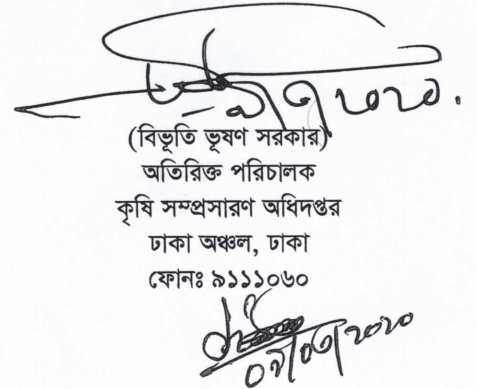 (বিভূতি ভূষণ সরকার)
অতিরিক্ত পরিচালক
কৃষি সম্প্রসারণ অধিদপ্তর
ঢাকা অঞ্চল, ঢাকা
ফোনঃ ৯১১১০৬০